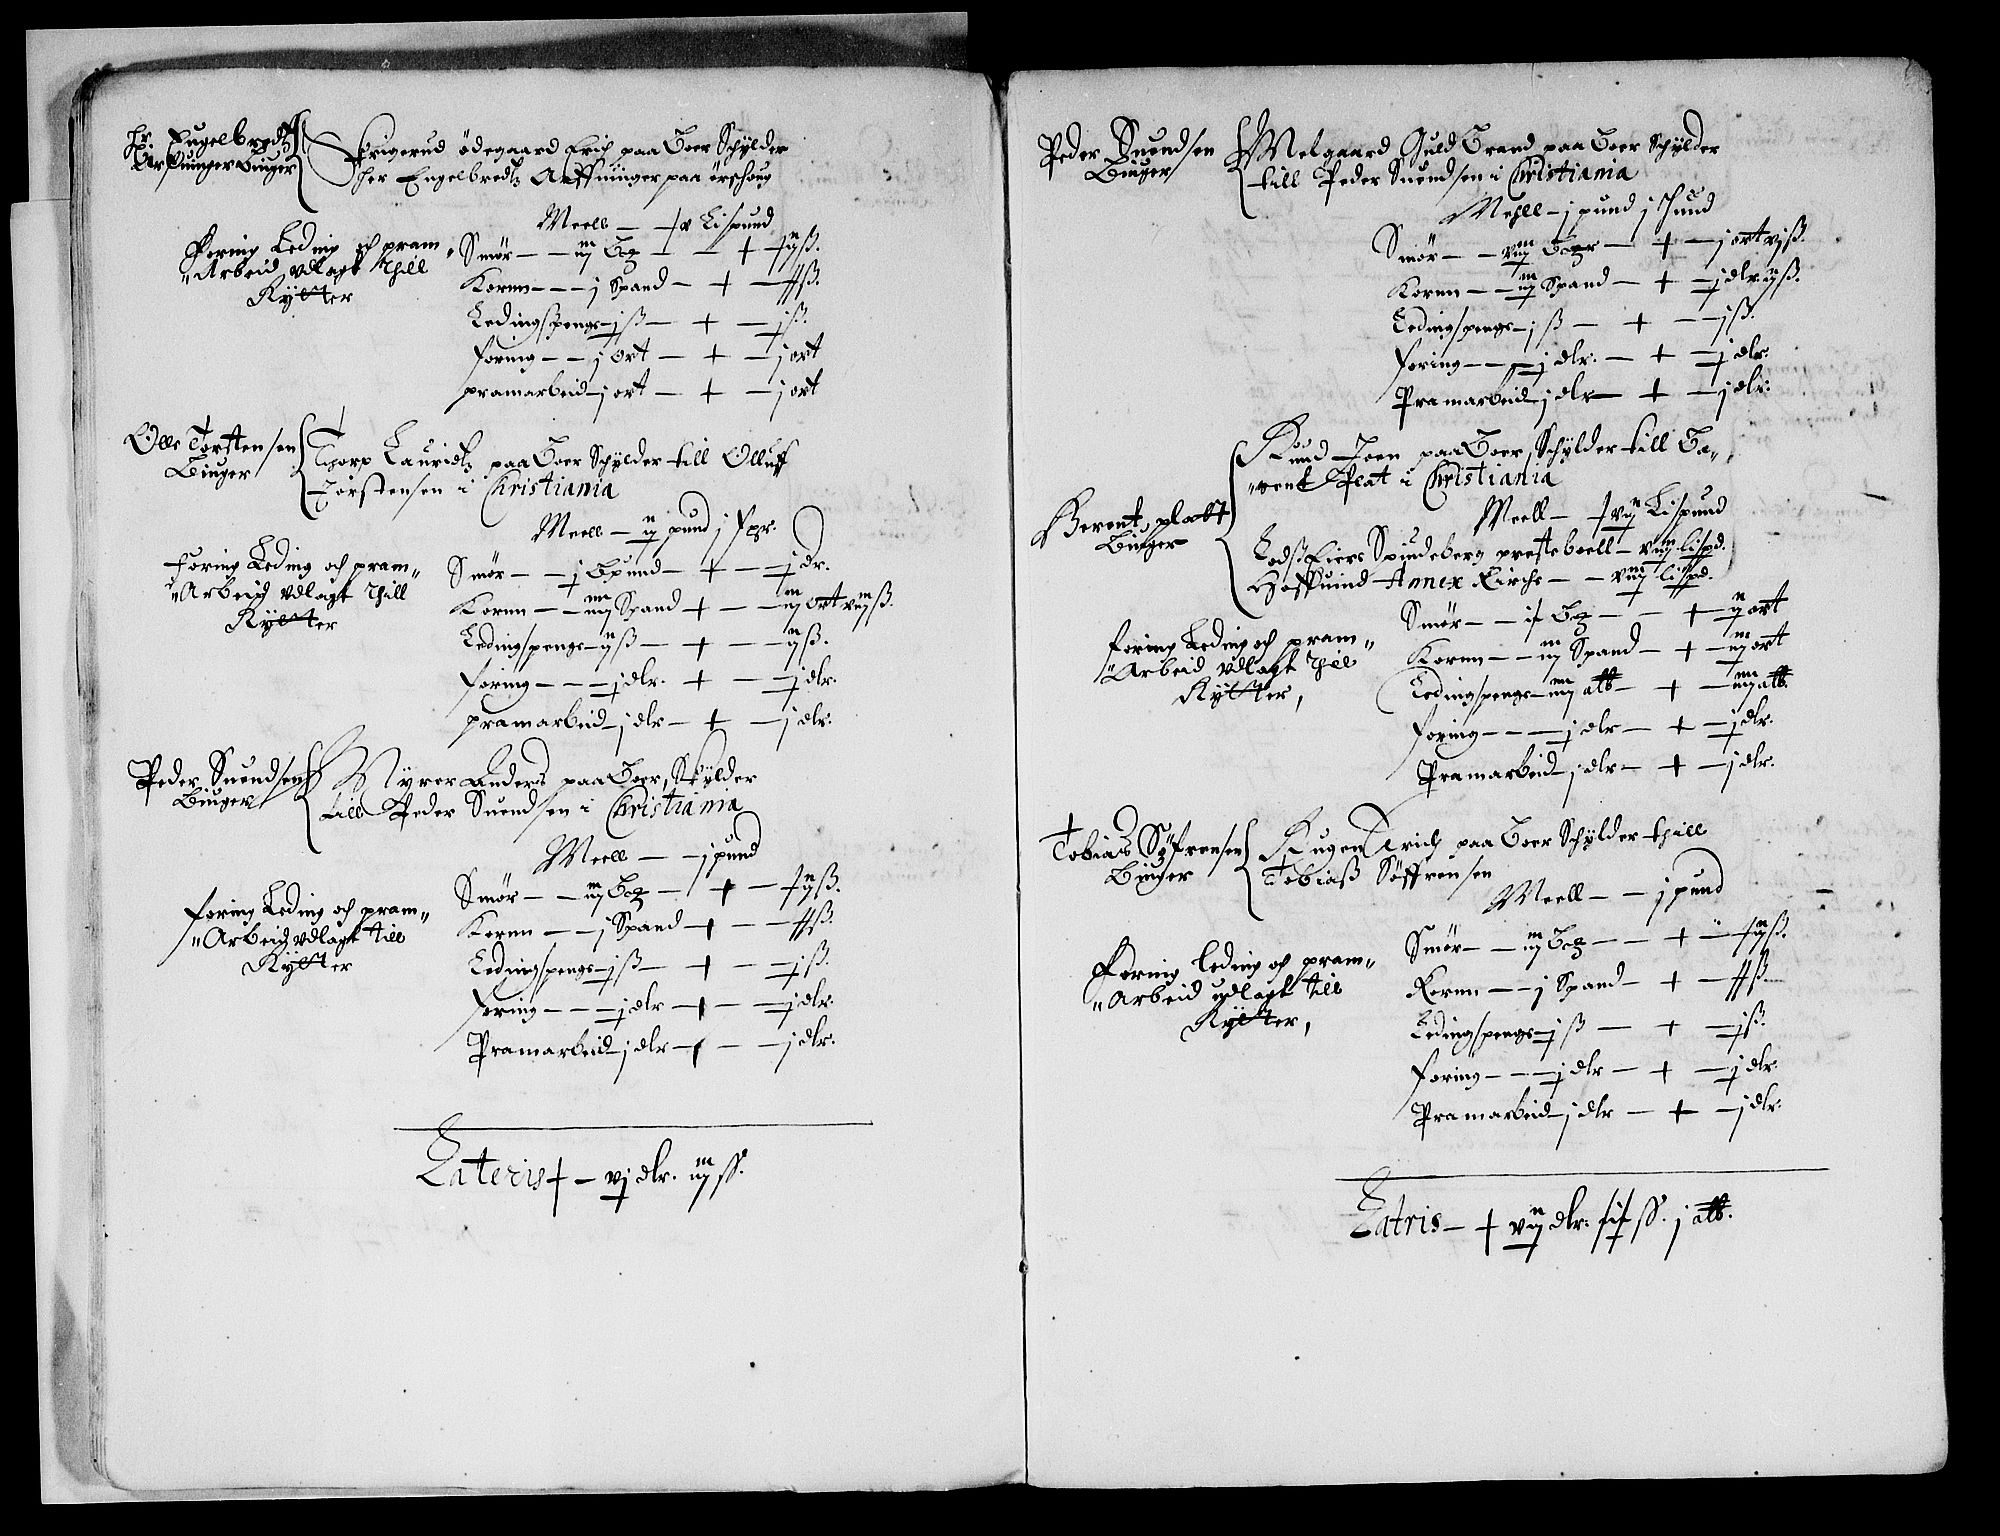 Hr Engelbredtz
Arffuinger Biuger
Frigerud ödegaard Erich paa Boer Schÿlder
her Engelbredtz Arffuinger paa örschoug
Meell — ½ Lispund
Foring Leding och pram„
„Arbeid vdlagt thill
Rÿtter
Smør — iij Bꝫ — + — ½ ij ß.
Korenn — j Spand — + — ß.
Ledingspenge j ß — + — j ß.
foring — j ort — + — j ort
pramarbeid j ort — + — j ort
Olle Torstensen
Biuger
Thorp Lauridtz paa Boer Schÿlder till Olluff
Torstensen i Christiania
Meell — ij pund j fpr.
Foring Leding och pram„
„Arbeid vdlagt thill
Rÿtter
Smør — j Bpund — + — j dr.
Korenn — iiij Spand + — iij ort viij ß.
Ledingspenge ij ß — + — ij ß.
foring — j dlr. + — j dlr.
pramarbeid j dlr — + — j dlr.
Peder Suendsen
Biuger
Mÿrer Anders paa Boer, Skÿlder
till Peder Suendsen i Christiania
Meell — j pund
foring Leding och pram„
„Arbeid vdlagt till
Rÿtter
Smør — iij Bꝫ — + — ½ ij ß.
Korenn — j Spand + — ß.
Ledingspenge j ß — + — j ß.
foring — j dlr + — j dlr.
Pramarbeid j dlr — j dlr.
Lateris + — vj dlr. iij ß.
Peder Suendsen
Biuger
Melgaard Guldbrand paa Boer Schÿlder
till Peder Suendsen i Christiania
Mehll — j pund j
Smør — viij Bꝫr — + — j ort vj ß.
Korenn — iij Spand — + — j dlr. ij ß.
Ledingspenge j ß — + — j ß.
foring — j dlr. — + — j dlr.
Pramarbeid j dlr — + — j dlr.
Berent platt
Biuger
Rund Joen paa Boer, Schÿlder till Be„
„rent Plat i Christiania
Meell — vij Lispund
Lodß Eiere Spindeberg presteboell — viij lispd.
Hoffuind Annex Kirche — viij lispd.
foring Leding och pram„
„Arbeid vdlagt thill
Rÿtter,
Smør — Bꝫ — + — ij ort
Korenn — iij Spand — + — iij ort
Ledingspenge iiij alb — + — iiij alb.
foring — j dlr — + — j dlr.
Pramarbeid j dlr — + — j dlr.
Tobias Söfrensen
Biuger
Rugen Erich paa Boer Schÿlder thill
Tobiaß Söffrensen
Meell — j pund
Foring leding och pram„
„Arbeid vdlagt till
Rÿtter,
Smør — iij Bꝫ — + — ½ ij ß.
Korenn — j Spand — + — ß.
Ledingspenge j ß — + — j ß.
foring — j dlr — + — j dlr.
Pramarbeid j dlr — + — j dlr.
Latris — + vij dlr. ß. j alb.